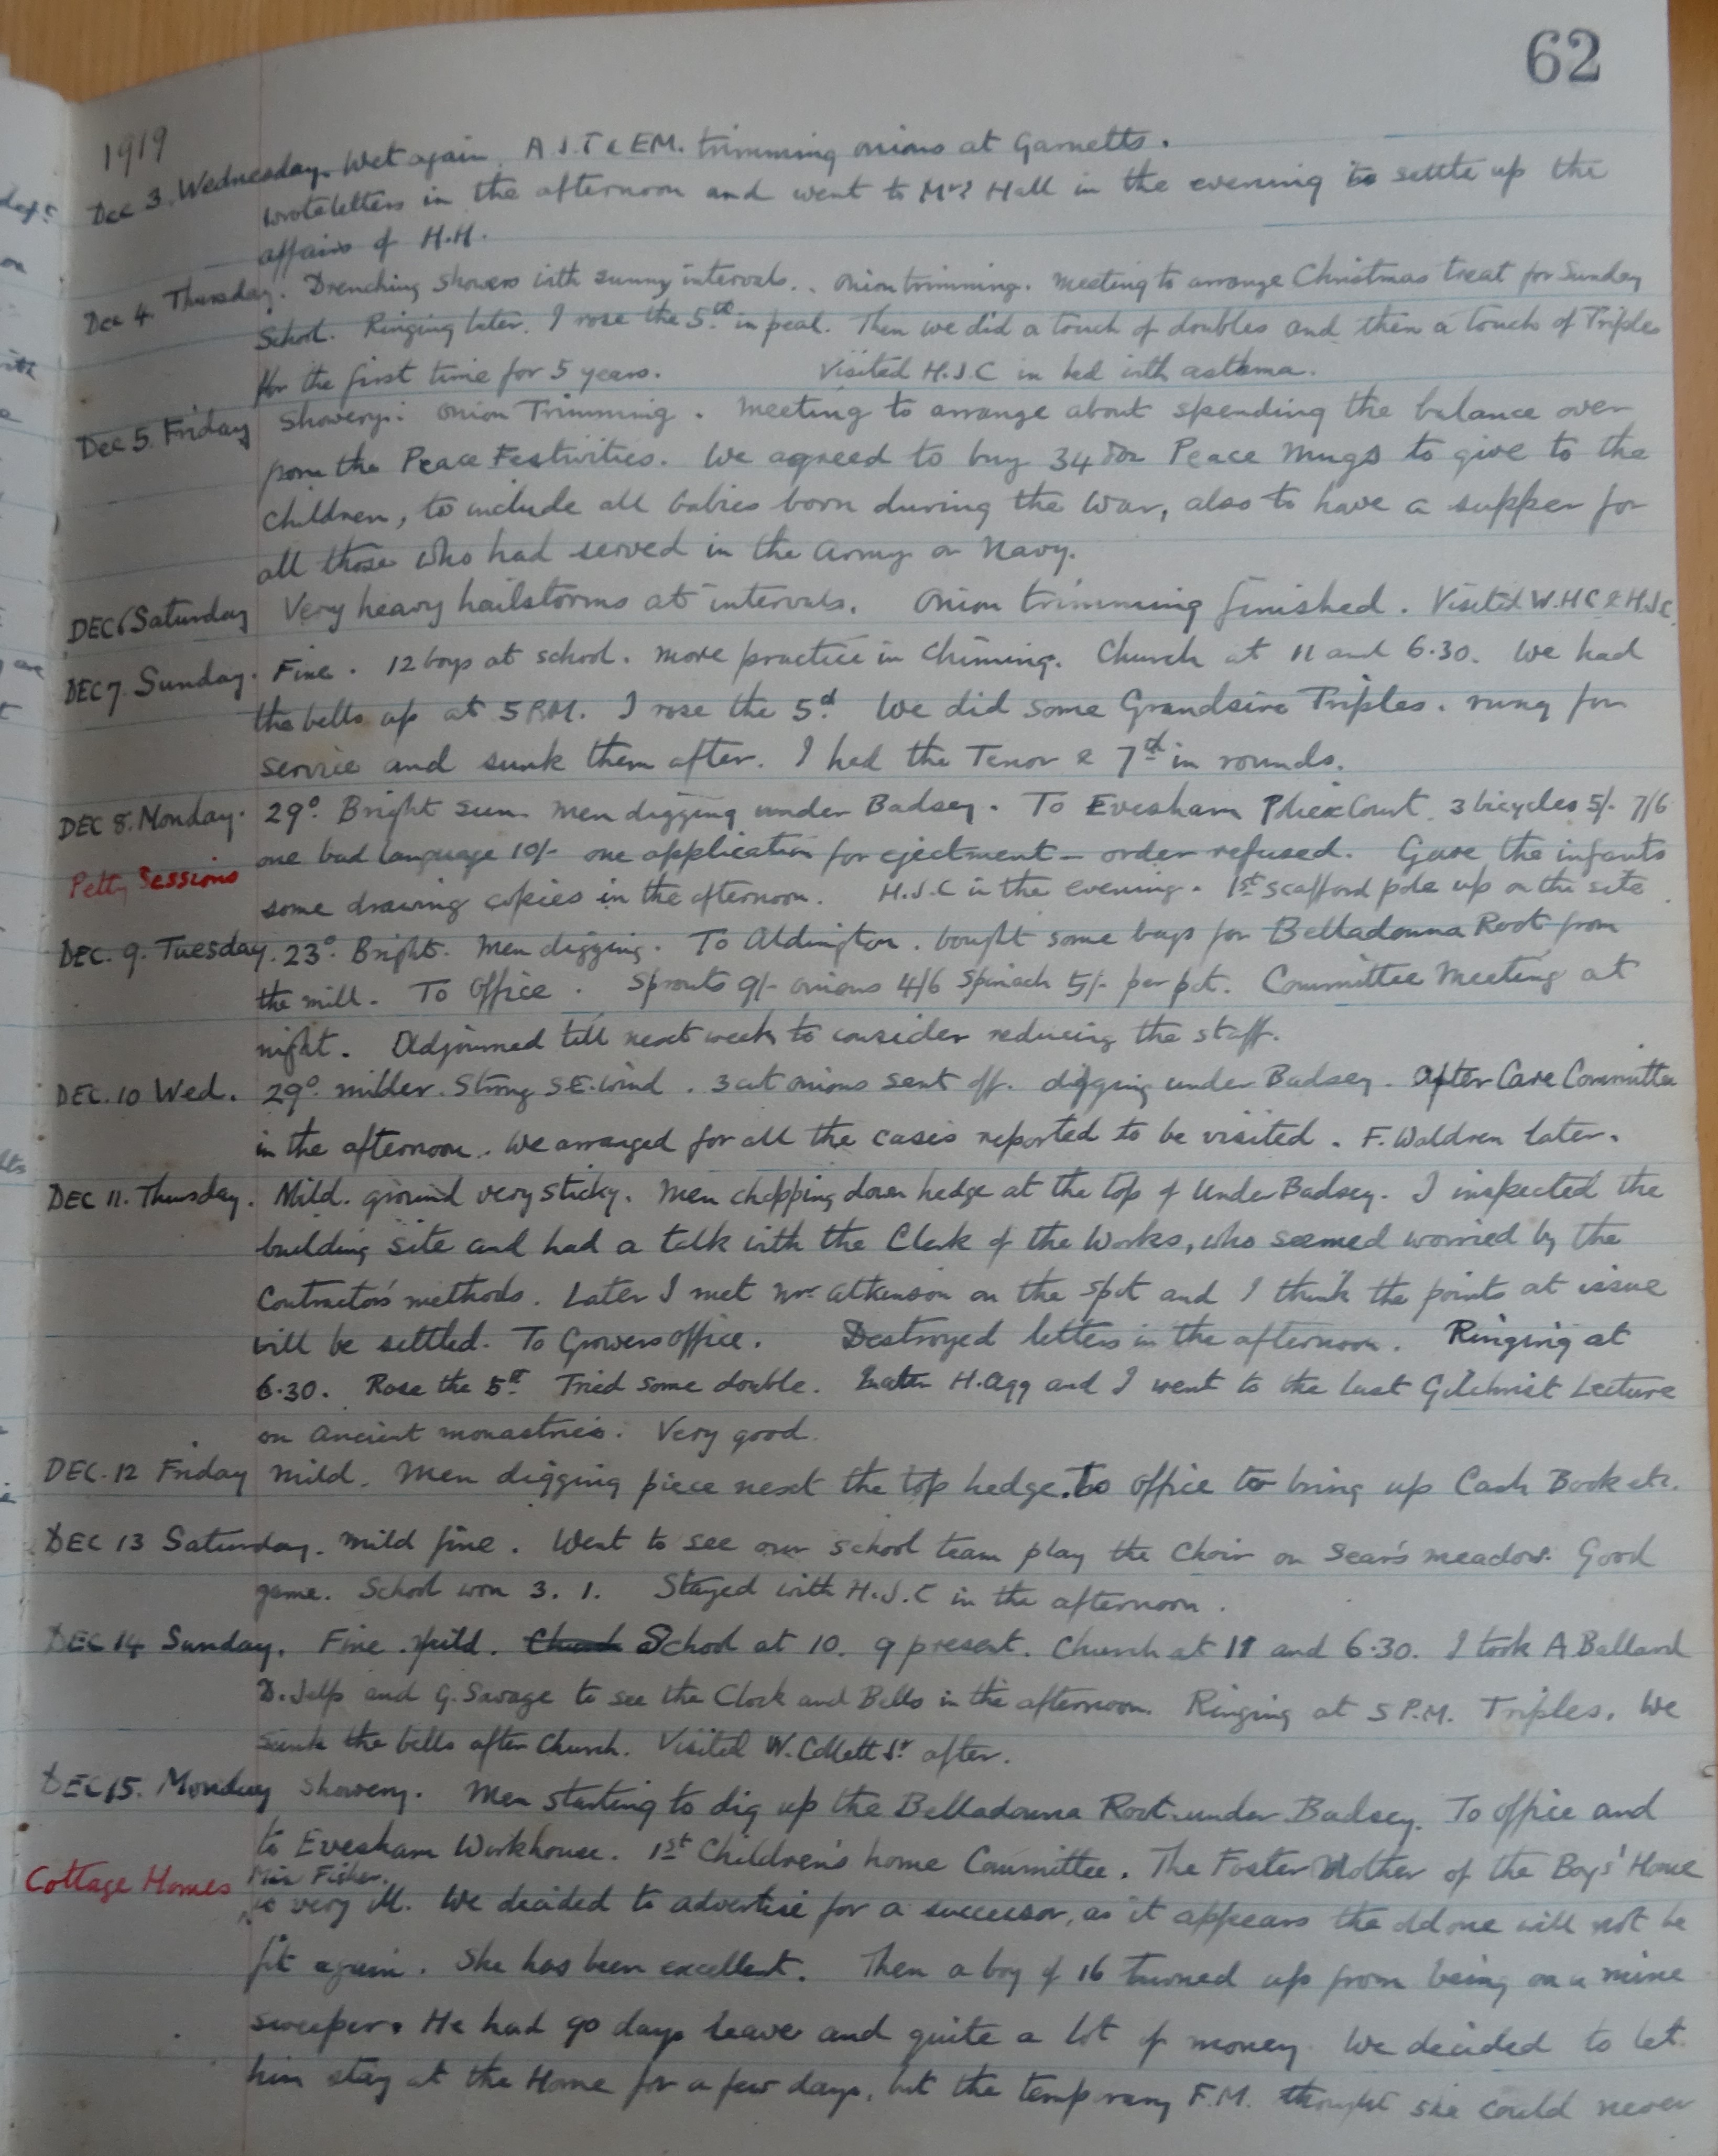 62
1919
Dec 3. Wednesday. Wet again. A J.T & E.M. trimming onions at Garnetts.
Wrote letters in the afternoon and went to Mrs Hall in the evening to settle up the
affairs of H.H.
Dec 4. Thursday. Drenching showers with sunny intervals. Onion trimming. Meeting to arrange Christmas treat for Sunday
School. Ringing later. I rose the 5th in peal. Then we did a touch of doubles and then a touch of Triples
for the first time for 5 years. Visited H.J.C in bed with asthma.
Dec 5. Friday Showery. Onion Trimming. Meeting to arrange about spending the balance over
from the Peace Festivities. We agreed to buy 34 doz Peace Mugs to give to the
children, to include all babies born during the War, also to have a supper for
all those who had served in the Army or Navy.
DEC 6 Saturday Very heavy hailstorms at intervals. Onion trimming finished. Visited W.H.C & H.J.C.
DEC 7. Sunday. Fine. 12 boys at school. More practice in chiming. Church at 11 and 6.30. We had
the bells up at 5 P.M. I rose the 5d We did some Grandsire Triples. rung for
service and sunk them after. I had the Tenor & 7d in rounds.
DEC 8. Monday. 29° Bright sun. Men digging under Badsey. To Evesham Police Court. 3 bicycles 5/- 7/6
Petty Sessions one bad language 10/- one application for ejectment - order refused. Gave the infants
some drawing copies in the afternoon. H.J.C in the evening. 1st scaffold pole up on the site.
DEC. 9. Tuesday. 23°. Bright. Men digging. To Aldington. bought some bags for Belladonna Root from
the mill. To Office. Sprouts 9/- onions 4/6 Spinach 5/- per pot. Committee Meeting at
night. Adjourned till next week to consider reducing the staff.
DEC. 10 Wed. 29° milder. Strong S.E. wind. 3 cwt onions sent off. digging under Badsey. After Care Committee
in the afternoon. We arranged for all the cases reported to be visited. F. Waldren later.
DEC 11. Thursday. Mild. ground very sticky. Men chopping down hedge at the top of Under Badsey. I inspected the
building site and had a talk with the Clerk of the Works, who seemed worried by the
Contractor's methods. Later I met Mr Atkinson on the spot and I think the points at issue
will be settled. To Growers office. Destroyed letters in the afternoon. Ringing at
6.30. Rose the 5th Tried some double. Later H. Agg and I went to the last Gilchrist Lecture
on Ancient monastries. Very good.
DEC. 12 Friday Mild. Men digging piece next the top hedge. To office to bring up Cash Book etc.
DEC 13 Saturday. Mild fine. Went to see our school team play the Choir on Sears meadow. Good
game. School won 3. 1. Stayed with H.J.C in the afternoon.
DEC 14 Sunday. Fine. Mild. Church School at 10. 9 present. Church at 11 and 6.30. I took A Ballard
D. Jelfs and G. Savage to see the Clock and Bells in the afternoon. Ringing at 5 P.M. Triples. We
sunk the bells after Church. Visited W. Collett Sr after.
DEC 15. Monday Showery. Men starting to dig up the Belladonna Root under Badsey. To office and
to Evesham Workhouse. 1st Children's home Committee. The Foster Mother of the Boys' Home
Cottage Homes Miss Fisher.
is very ill. We decided to advertise for a successor, as it appears the old one will not be
fit again. She has been excellent. Then a boy of 16 turned up from being on a mine
sweeper. He had 90 days leave and quite a lot of money. We decided to let
him stay at the Home for a few days, but the temporary F.M. thought she could never